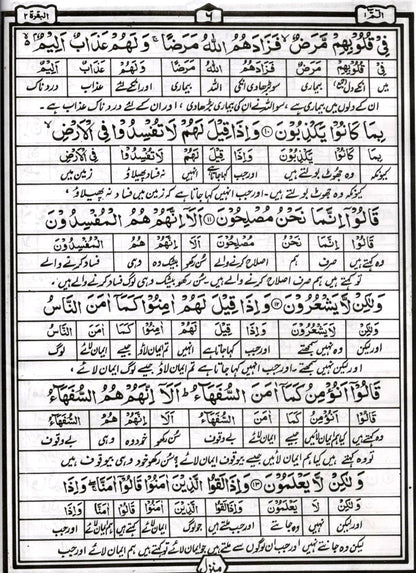 البقرة ٢
٦
الٓمّٓ
فِیْ قُلُوْبِهِمْ مَّرَضٌ ۙ فَزَادَهُمُ اللّٰهُ مَرَضًا ۚ وَلَهُمْ عَذَابٌ اَلِیْمٌ ۙ۬
فِیْ قُلُوْبِهِمْ مَرَضٌ فَزَادَهُمُ اللّٰهُ مَرَضًا وَلَهُمْ عَذَابٌ اَلِیْمٌ
میں انکے دل بیماری سو بڑھادی انکی اللہ بیماری اور انکے لئے عذاب دردناک
ان کے دلوں میں بیماری ہے، سو اللہ نے ان کی بیماری بڑھادی، اور ان کے لئے دردناک عذاب ہے۔
بِمَا كَانُوْا یَكْذِبُوْنَ ۝۱۰ وَاِذَا قِیْلَ لَهُمْ لَا تُفْسِدُوْا فِی الْاَرْضِ ۙ
بِمَا كَانُوْا یَكْذِبُوْنَ وَاِذَا قِیْلَ لَهُمْ لَا تُفْسِدُوْا فِی الْاَرْضِ
کیونکہ وہ جھوٹ بولتے ہیں اور جب کہا جاتا ہے انہیں نہ فساد پھیلاؤ زمین میں
کیونکہ وہ جھوٹ بولتے ہیں۔ اور جب انہیں کہا جاتا ہے کہ زمین میں فساد نہ پھیلاؤ
قَالُوْۤا اِنَّمَا نَحْنُ مُصْلِحُوْنَ ۝۱۱ اَلَاۤ اِنَّهُمْ هُمُ الْمُفْسِدُوْنَ
قَالُوْا اِنَّمَا نَحْنُ مُصْلِحُوْنَ اَلَا اِنَّهُمْ هُمُ الْمُفْسِدُوْنَ
وہ کہتے ہیں صرف ہم اصلاح کرنے والے سن رکھو بیشک وہ وہی فساد کرنے والے
تو کہتے ہیں ہم صرف اصلاح کرنے والے ہیں۔ سن رکھو بیشک وہی لوگ فساد کرنے والے ہیں۔
وَلٰكِنْ لَّا یَشْعُرُوْنَ ۝۱۲ وَاِذَا قِیْلَ لَهُمْ اٰمِنُوْا كَمَاۤ اٰمَنَ النَّاسُ
وَلٰكِنْ لَا یَشْعُرُوْنَ وَاِذَا قِیْلَ لَهُمْ اٰمِنُوْا كَمَا اٰمَنَ النَّاسُ
اور لیکن وہ نہیں سمجھتے اور جب کہا جاتا ہے انہیں تم ایمان لاؤ جیسے ایمان لائے لوگ
اور لیکن وہ نہیں سمجھتے۔ اور جب انہیں کہا جاتا ہے تم ایمان لاؤ جیسے لوگ ایمان لائے،
قَالُوْۤا اَنُؤْمِنُ كَمَاۤ اٰمَنَ السُّفَهَآءُ ؕ اَلَاۤ اِنَّهُمْ هُمُ السُّفَهَآءُ
قَالُوْا اَنُؤْمِنُ كَمَا اٰمَنَ السُّفَهَآءُ اَلَا اِنَّهُمْ هُمُ السُّفَهَآءُ
وہ کہتے ہیں کیا ہم ایمان لائیں جیسے ایمان لائے بے وقوف سن رکھو خود وہ وہی بے وقوف
تو وہ کہتے ہیں کیا ہم ایمان لائیں جیسے بیوقوف ایمان لائے؟ سن رکھو خود وہی بیوقوف ہیں
وَلٰكِنْ لَّا یَعْلَمُوْنَ ۝۱۳ وَاِذَا لَقُوا الَّذِیْنَ اٰمَنُوْا قَالُوْۤا اٰمَنَّا ۖۚ وَاِذَا
وَلٰكِنْ لَا یَعْلَمُوْنَ وَاِذَا لَقُوا الَّذِیْنَ اٰمَنُوْا قَالُوْا اٰمَنَّا وَاِذَا
اور لیکن نہیں وہ جانتے اور جب ملتے ہیں جو لوگ ایمان لائے کہتے ہیں ہم ایمان لائے اور جب
لیکن وہ جانتے نہیں اور جب ان لوگوں سے ملتے ہیں جو ایمان لائے تو کہتے ہیں ہم ایمان لائے اور جب
منزل